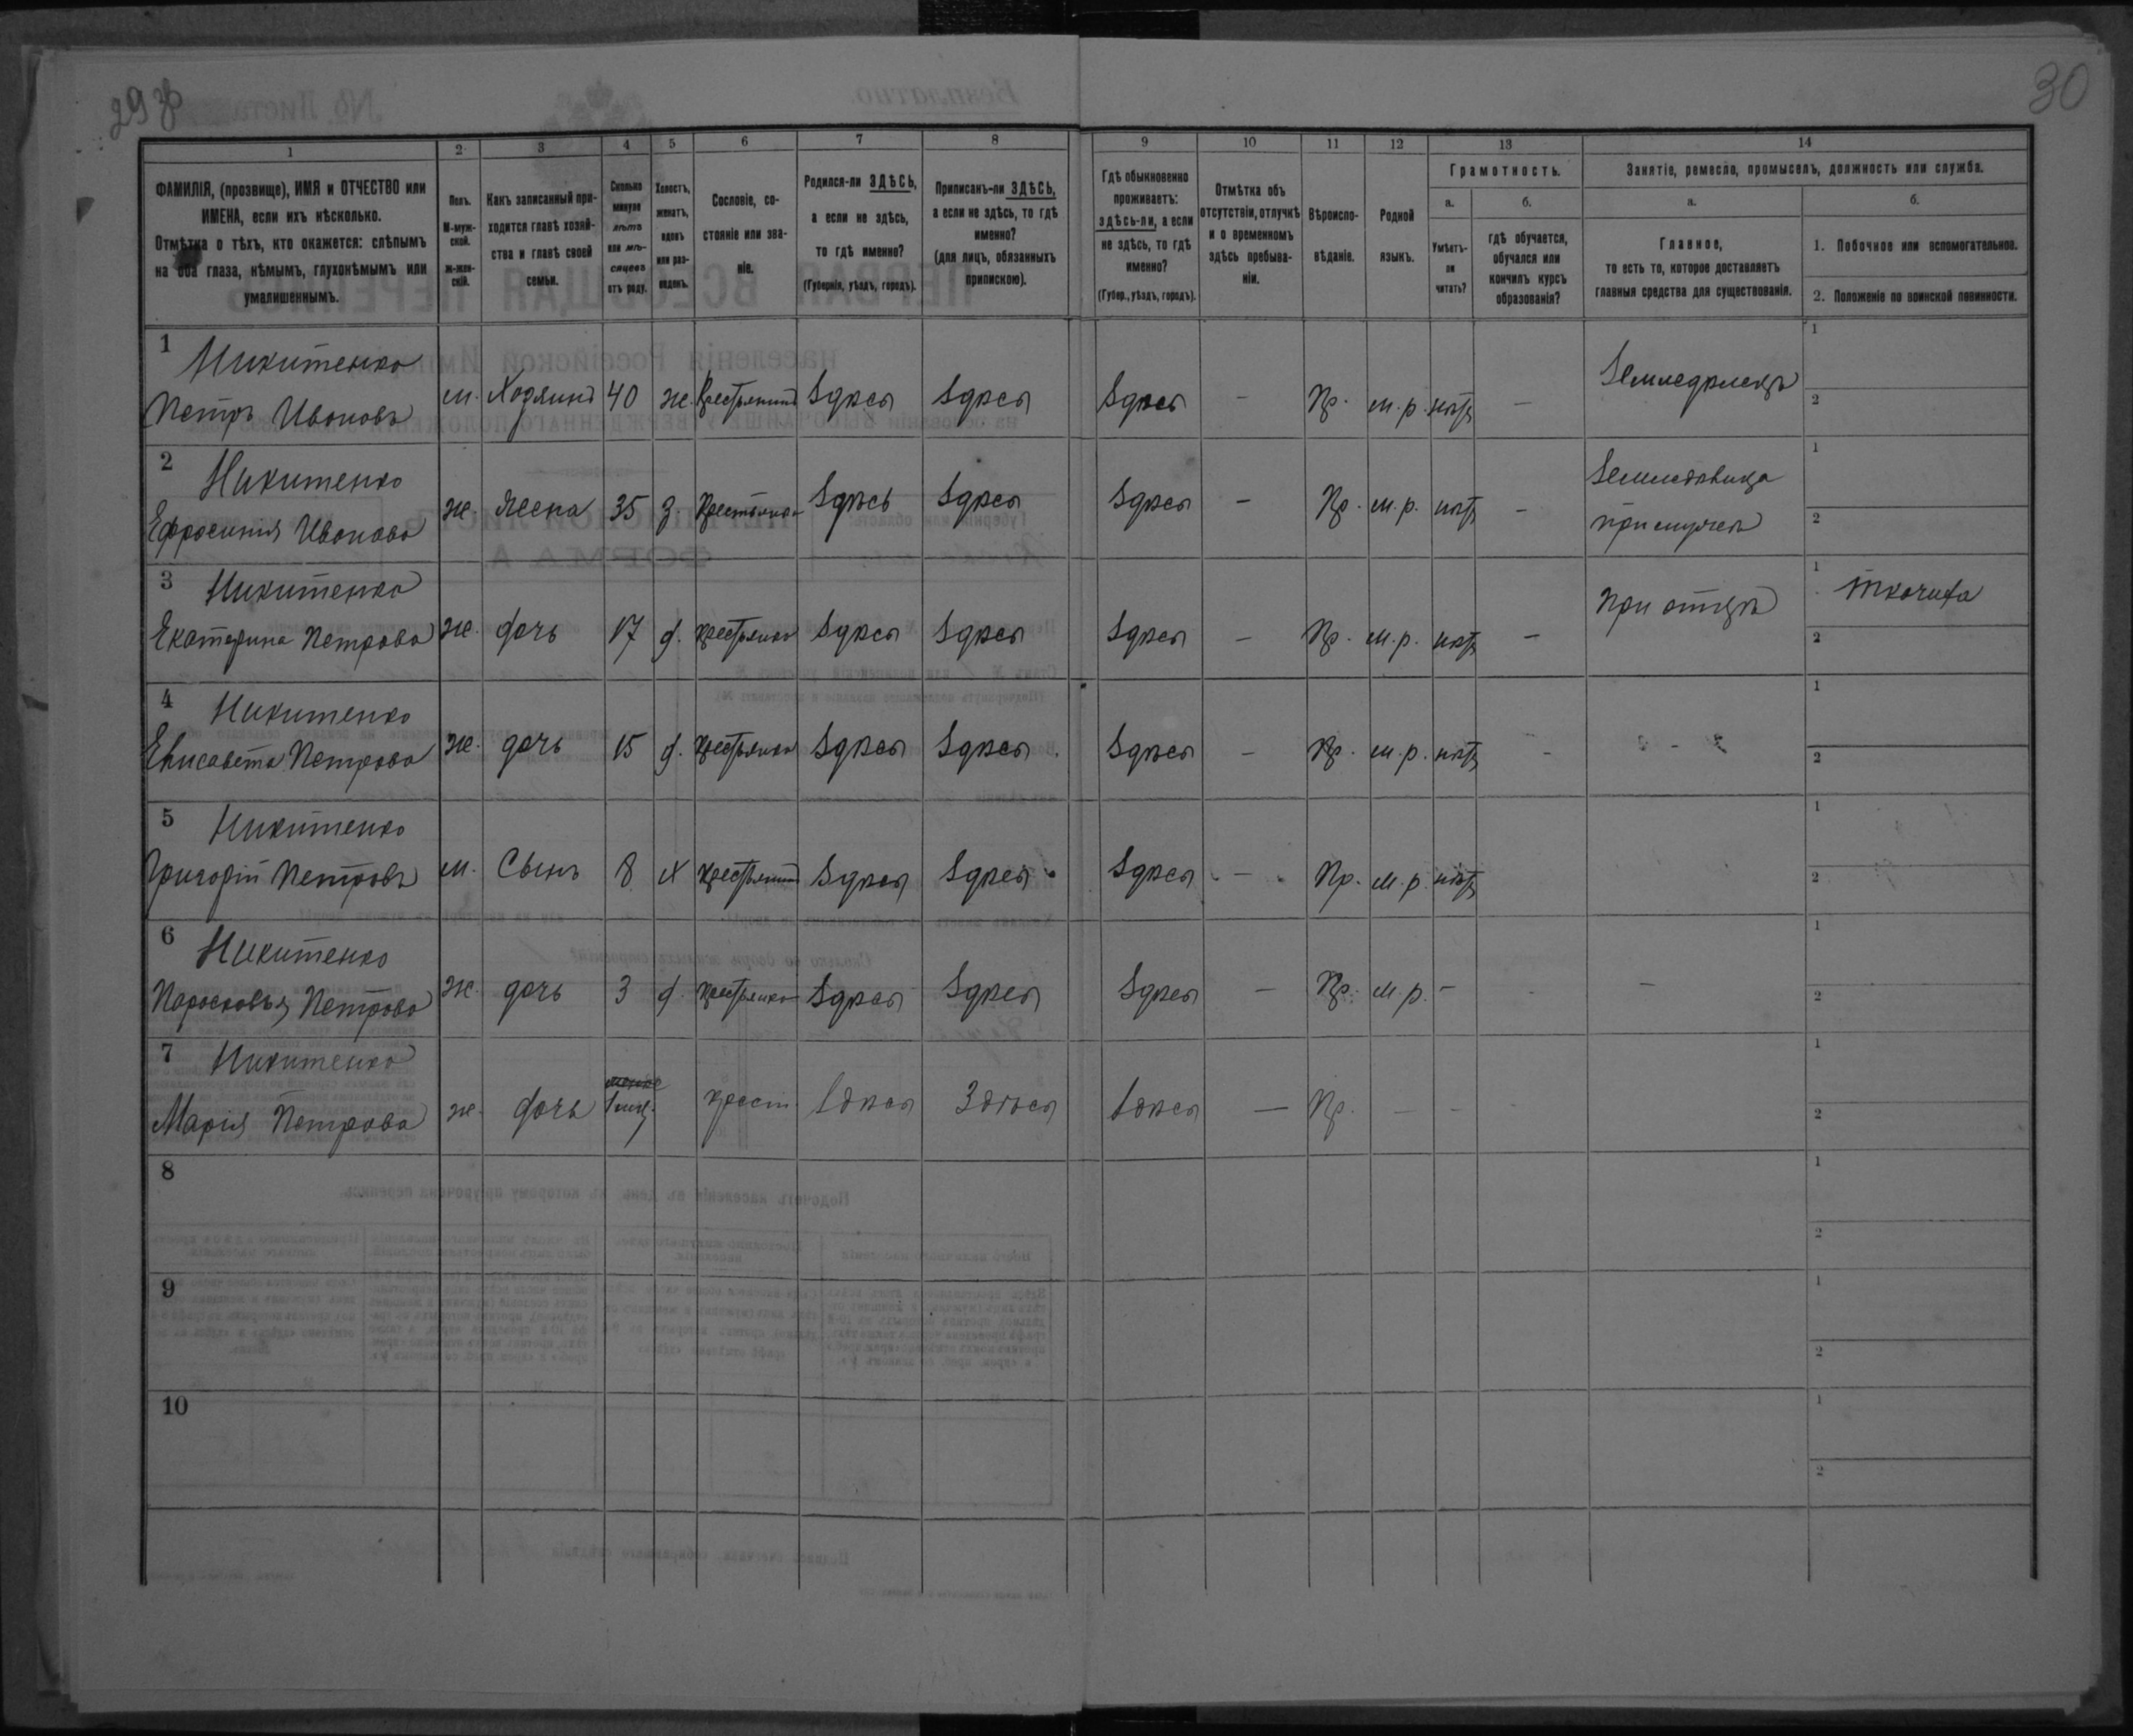 29 30
1 2 3 4 5 6 7 8 9 10 11 12 13 14
ФАМИЛІЯ, (прозвище), ИМЯ и ОТЧЕСТВО или
ИМЕНА, если ихъ нѣсколько.
Отмѣтка о тѣхъ, кто окажется: слѣпымъ
на оба глаза, нѣмымъ, глухонѣмымъ или
умалишеннымъ.
Полъ.
М-муж-
ской.
ж-жен-
скій.
Какъ записанный при-
ходится главѣ хозяй-
ства и главѣ своей
семьи.
Сколько
минуло
лѣтъ
или мѣ-
сяцевъ
отъ роду.
Холостъ,
женатъ,
вдовъ
или раз-
веденъ.
Сословіе, со-
стояніе или зва-
ніе.
Родился-ли ЗДѢСЬ,
а если не здѣсь,
то гдѣ именно?
(Губернія, уѣздъ, городъ).
Приписанъ-ли ЗДѢСЬ,
а если не здѣсь, то гдѣ
именно?
(для лицъ, обязанныхъ
припискою).
Гдѣ обыкновенно
проживаетъ:
здѣсь-ли, а если
не здѣсь, то гдѣ
именно?
(Губер., уѣздъ, городъ).
Отмѣтка объ
отсутствіи, отлучкѣ
и о временномъ
здѣсь пребыва-
ніи.
Вѣроиспо-
вѣданіе.
Родной
языкъ.
Грамотность.
а.
Умѣетъ-
ли
читать?
б.
гдѣ обучается,
обучался или
кончилъ курсъ
образованія?
Занятіе, ремесло, промыселъ, должность или служба.
а.
Главное,
то есть то, которое доставляетъ
главныя средства для существованія.
б.
1. Побочное или вспомогательное.
2. Положеніе по воинской повинности.
1 Никитенко
Петръ Ивановъ м. Хозяинъ 40 ж. Крестьянинъ Здѣсь Здѣсь Здѣсь - Пр. м.р. нѣтъ - Земледѣлецъ 1 2
2 Никитенко
Ефросинія Иванова ж. жена 35 з. Крестьянка Здѣсь Здѣсь Здѣсь - Пр. м.р. нѣтъ -
при мужѣ 1 2
3 Никитенко
Екатерина Петрова ж. дочь 17 д. крестьянка Здѣсь Здѣсь Здѣсь - Пр. м.р. нѣтъ - При отцѣ 1 Ткачиха 2
4 Никитенко
Елисавета Петрова ж. дочь 15 д. крестьянка Здѣсь Здѣсь Здѣсь - Пр. м.р. нѣтъ - - 1 2
5 Никитенко
Григорій Петровъ м. Сынъ 8 х крестьянинъ Здѣсь Здѣсь Здѣсь - Пр. м.р. нѣтъ 1 2
6 Никитенко
Парасковья Петрова ж. дочь 3 д. крестьянка Здѣсь Здѣсь Здѣсь - Пр. м.р. - - - 1 2
7 Никитенко
Марія Петрова ж. дочь 1 мѣс. крест. Здѣсь Здѣсь Здѣсь - Пр. - - - 1 2
8 1 2
9 1 2
10 1 2